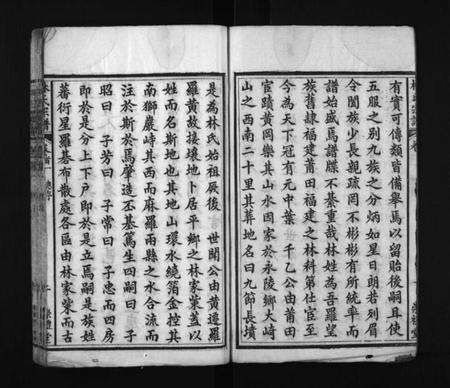 有實可傳頼皆備舉焉以貽後嗣且使
五服之别九族之分炳如星日朗若列眉
令閤族少長親疏罔不彬彬有所統率而
譜始盛焉譜牒不綦重哉林姓為吾羅望
族舊隷福建莆田福建之林科第仕宦至
今為天下冠有元中葉 千乙公由莆田
宦蹟黄岡樂其山水因家於永陵鄉大崎
山之西南二十里其葬地名曰九節長墳
是為林氏始祖厥後 世閏公由黄遷羅
羅黄故接壤地卜居平鄉之林家棠蓋以
姓而名斯地也其地山環水繞箔金控其
南獅巖峙其西而麻羅兩縣之水合流而
注於斯於焉肇造丕基篤生四嗣曰 子
昭曰 子芳曰 子常曰 子忠而四房
即於是分上下戶即於是立焉嗣是族姓
蕃衍星羅基布散處各區由林家棠而古
林氏宗譜